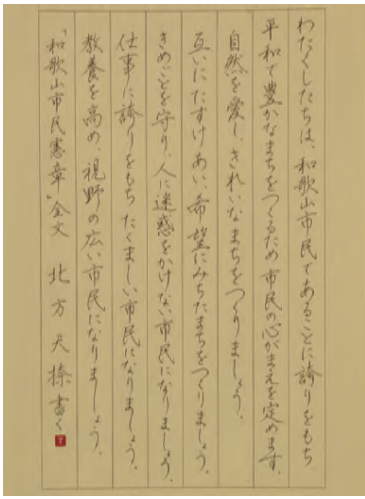 わたくしたちは、和歌山市民であることに誇りをもち
平和で豊かなまちをつくるため市民の心がまえを定めます。
自然を愛し、きれいなまちをつくりましょう。
互いにたすけあい、希望にみちたまちをつくりましょう。
きめごとを守り、人に迷惑をかけない市民になりましょう。
仕事に誇りをもち たくましい市民になりましょう。
教養を高め、視野の広い市民になりましょう。
「和歌山市民憲章」全文 北方天操書く